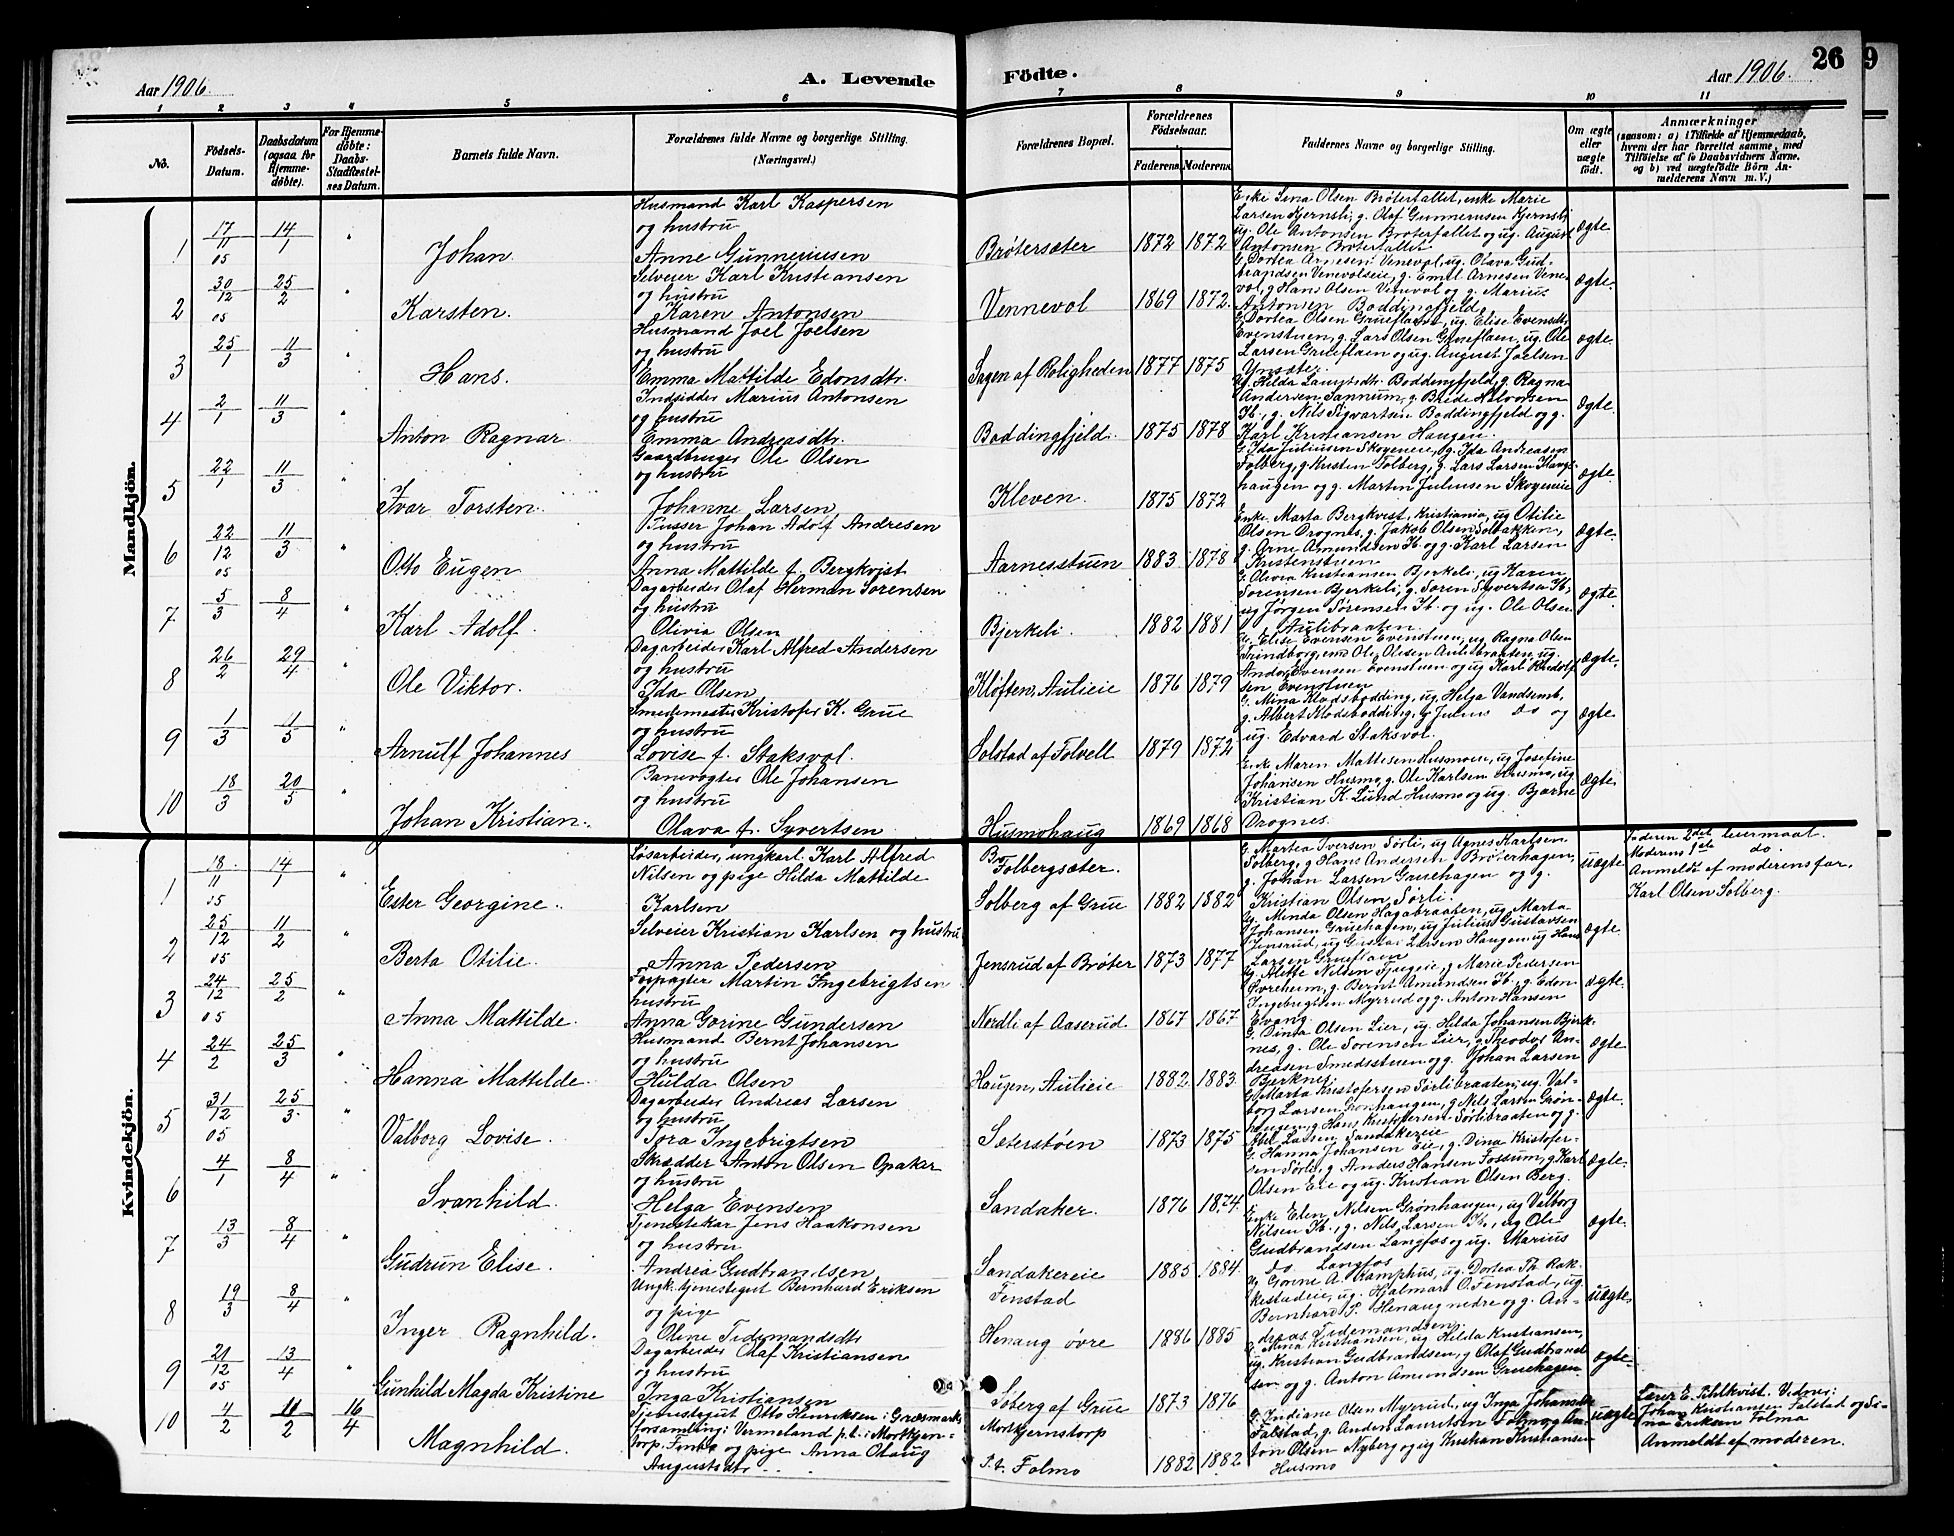 26
9
Aar 1906.
A. Levende
Födte.
Aar 1906.
1 2 3 4 5 6 7 8 9 10 11
No.
Födsels-
Datum.
Daabsdatum
(ogsaa for
Hjemme-
döbte).
For Hjemme-
döbte:
Daabs-
Stadfæstel-
ses Datum.
Barnets fulde Navn.
Forældrenes fulde Navne og borgerlige Stilling.
(Næringsvei.)
Forældrenes Bopæl.
Forældrenes
Födselsaar.
Faderens
Moderens
Faddernes Navne og borgerlige Stilling.
Om ægte
eller
uægte
födt.
Anmærkninger
(saasom: a) i Tilfælde af Hjemmedaab,
hvem der har forrettet samme, med
Tilföielse af to Daabsvidners Navne.
og b) ved uægtefödte Börn An-
melderens Navn m. V.)
Mandkjön.
1 17/11 05 14/1 " Johan
Husmand Karl Kaspersen
og hustru
Anne Gunneriusen
Brøtersæter 1872 1872
Enke Lina Olsen Brøterfallet, enke Marie
Larsen Kjernsli, g. Olaf Gunnerusen Kjernsli,
ug. Ole Antonsen Brøterfallet og ug. August
Antonsen Brøterfallet
ægte
2 30/12 05 25/2 " Karsten.
Selveier Karl Kristiansen
og hustru
Karen Antonsen
Vennevol 1869 1872.
G. Dortea Arnesen Venevol, ug. Olava Gud-
brandsen Venevolseie, g. Emil Arnesen Vene-
vol, g Hans Olsen Venevol og g. Marius
Antonsen Boddingfjeld.
ægte.
3 25/1 11/3 " Hans.
Husmand Joel Joelsen
og hustru
Emma Mattilde Edonsdtr.
Sagen af Roligheden 1877 1875
G. Dortea Olsen Grueflaen, ug. Elise Evensdtr,
Evenstuen, g. Lars Olsen Grueflaen, ug. Ole
Larsen Grueflaen og ug. August Joelsen
ægte.
4 2/1 11/3 " Anton Ragnar
Indsidder Marius Antonsen
og hustru
Emma Andreasdtr.
Boddingfjeld. 1875 1878
Ug. Hilda Larsdtr. Boddingfjeld, g. Ragna
Andersen Sannum, g. Brede Halvorsen
Ib., g. Nils Sigvartsen Boddingfjeld og g.
Karl Kristiansen Haugen.
ægte.
5 22/1 11/3 Ivar Torsten.
Gaardbruger Ole Olsen
og hustru
Johanne Larsen
Kleven. 1875 1872
G. Ida Juliusen Skogeneie, g. Ida Andreasen
Folberg, g. Kristen Folberg, g. Lars Larsen
haugen og g. Martin Juliusen Skogeneie
ægte.
6 22/12 05 11/3 " Otto Eugen
Pusser Johan Adolf Andresen
og hustru
Anna Mattilde f. Bergkvist
Aarnesstuen 1883 1878
Enke Marta Bergkvist, Kristiania, ug Otilie
Olsen Drognes, g. Jakob Olsen Solbakken,
g. Arne Amundsen Ib. og g. Karl Larsen
Kristenstuen
ægte.
7 5/3 8/4 " Karl Adolf.
Dagarbeider Olaf Herman Sørensen
og hustru
Olivia Olsen
Bjerkeli. 1882 1881
G. Olivia Kristiansen Bjerkeli, ug Karen
Sørensen Bjerkeli, g. Søren Syvertsen Ib.,
ug Jørgen Sørensen Ib. og ug. Ole Olsen
Aulibraaten.
ægte.
8 26/2 29/4 " Ole Viktor.
Dagarbeider Karl Alfred Andersen
og hustru
Ida Olsen
Kløften, Aulieie 1876 1879
Ug. Elise Evensen Evenstuen, ug Ragna Olsen
Trindborg, Ole Olesen Aulibraaten, ug.
Andor Evensen Evenstuen og ug Karl Rudolf-
sen, Evenstuen
ægte.
9 1/3 11/5 " Arnulf Johannes
Smedemester Kristofer K. Grue
og hustru
Lovise f. Staksvol.
Solstad af Folvell 1879 1872
G. Mina Klodsbodding, ug. Helga Vandsemb,
g. Albert Klodsbodding, g Julius do og
ug. Edvard Staksvol.
ægte.
10 18/3 20/5 " Johan Kristian.
Banevogter Ole Johansen
og hustru
Olava f. Syvertsen
Husmohaug 1869 1868
Enke Maren Mattisen Husmoeie, ug Josefine
Johansen Husmo, g. Ole Karlsen Husmo, ug
Kristian K. Lund Husmo og ug. Bjarne
Drognes.
ægte.
Kvindekjön.
1 18/11 05 14/1 " Ester Georgine.
Løsarbeider, ungkarl. Karl Alfred
Nilsen og pige Hilda Mattilde
Karlsen
Folbergsæter.
Solberg af Grue 1882 1882
G. Martea Iversen Sørli, ug Agnes Karlsen
Solberg, g Hans Andersen Brøterhagen,
g. Johan Larsen Gruehagen og g.
Kristian Olsen Sørli.
uægte
Faderen 2det leiermaal.
Moderens 1ste do.
Anmeldt af moderens far,
Karl Olsen Solberg.
2 25/12 05 11/2 " Berta Otilie.
Selveier Kristian Karlsen og hustru
Anna Pedersen
Jensrud af Brøter 1873 1877
Ug. Minda Olsen Hagabraaten, ug. Marta
Johansen Gruehagen, ug Julius Gustavsen
Jensrud, ug Gustav Larsen Haugen ug Hans
Larsen Grueflaen
ægte.
3 24/12 05 25/2 " Anna Mattilde.
Forpagter Martin Ingebrigtsen
hustru
Anna Gorine Gundersen
Nordli af Aaserud. 1867 1867
Ug. Alette Nilsen Fjuseie, g Marie Pedersen
Øvrehum, g. Bernt Amundsen Ib., g. Edon
Ingebrigtsen Myrrud og g. Anton Hansen
Evang.
ægte.
4 24/2 25/3 " Hanna Mattilde.
Husmand Bernt Johansen
og hustru
Hulda Olsen
Haugen, Aulieie 1882 1883.
G. Dina Olsen Lier, ug. Hilda Johansen Bjerk-
nes, g. Ole Sørensen Lier, g. Theodor An-
dreasen Smedsstuen og g. Johan Larsen
Berknes.
ægte.
5 31/12 05 25/3 " Valborg Lovise.
Dagarbeider Andreas Larsen
og hustru
Tora Ingebrigtsen
Sæterstøen 1873 1875
G. Marta Kristofersen Sørlibraaten, ug. Val-
borg Larsen Grønhaugen, g Nils Larsen Grøn-
haugen, g Hans Kristofersen Sørlibraaten og g.
Larsen Sandakereie
ægte.
6 4/1 8/4 " Svanhild.
Skrædder Anton Olsen Opaker
og hustru
Helga Evensen
Sandaker. 1876 1874.
G. Hanna Johansen Eie, g. Dina Kristofer-
sen Sørli, g Anders Hansen Fossum, g Karl
Olsen Eie og ug. Kristian Olsen Berg.
ægte.
7 13/3 8/4 " Gudrun Elise.
Tjenestekar Jens Haakonsen
og hustru
Andrea Gudbrandsen
Sandakereie 1885 1884.
Enke Elen Nilsen Grønhaugen, ug Valborg
Nilsen Ib., g. Nils Larsen Ib., ug Ole
Gudbrandsen Langfos og ug. Marius
do Langfos
ægte.
8 19/3 8/4 " Inger Ragnhild.
Ungk. tjenestegut Bernhard Eriksen
og pige
Oline Tidemandsdtr
Fenstad
Henaug øvre 1886 1885
Ug Gorine A. Kamphus, ug. Dortea Th. Rak-
kestadeie, ug. Hjalmar O. Fenstad, ug.
Bernhard P. Henaug nedre og g. An-
dreas Tidemandsen.
uægte,
9 21/12 05 13/4 " Gunhild Magda Kristine
Dagarbeider Olaf Kristiansen
og hustru
Inga Kristiansen
Søberg af Grue 1873 1876
G. Mina Kristiansen, ug Hilda Kristiansen,
ug. Kristian Gudbrandsen, g Olaf Gudbrand-
sen og g. Anton Amundsen Gruehagen
ægte.
10 4/2 11/2 16/4 Magnhild.
Tjenestegut Otto Henriksen i Græsmarks
forsamling i Vermeland p.t. i Morkjern-
torp, og pige Anna Olaug
Augustsdtr.
Morkjernstorp
p.t. Folmo 1882 1882
G. Indiane Olsen Myrrud, ug Inga Johanette
Falstad, g. Anders Lauritsen Folmo, g An-
ton Olsen Nyberg og ug Kristian Kristiansen
Husmo
uægte
Lærer E. Pihlkvist. Vidner:
Johan Kristiansen Falstad og Si-
na Eriksen Folmo
Anmeldt af moderen.